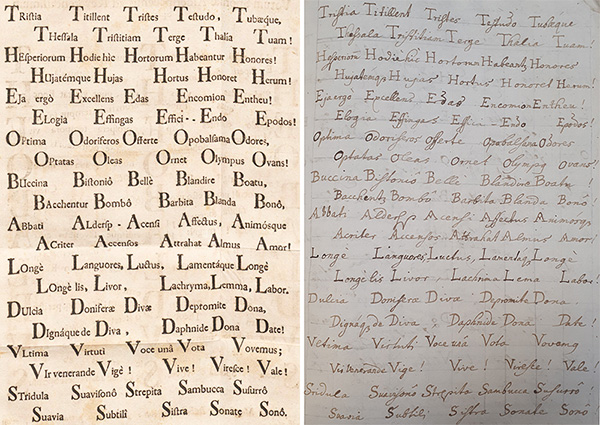 Tristia Titillent Tristes Testudo, Tubæque,
Thessala Tristitiam Terge Thalia Tuam!
Hesperiorum Hodie hic Hortorum Habeantur Honores!
Hujatémque Hujas Hortus Honoret Herum!
Eja ergò Excellens Edas Encomion Entheu!
ELogia Effingas Effici-- Endo Epodos!
OPtima Odoriferos Offerte Opobalsama Odores,
OPtatas Oleas Ornet Olympus Ovans!
BUccina Bistoniô Bellè Blandire Boatu,
BAcchentur Bombô Barbita Blanda Bonô,
ABbati ALdersp- Acensi Affectus, Animósque
ACriter Accensos Attrahat Almus Amor!
LOngè Languores, Luctus, Lamentáque Longè
LOngè lis, Livor, Lachryma, Lemma, Labor.
DUlcia Doniferæ Divæ Depromite Dona,
DIgnáque de Diva, Daphnide Dona Date!
VLtima Virtuti Voce unâ Vota Vovemus;
VIr venerande Vigè! Vive! Viresce! Vale!
STridula Suavisonô Strepita Sambucca Susurrô
Suavia Subtili Sistra Sonate Sonô.
Tristia Titillent Tristes Testudo Tubæque
Thessala Tristitiam Terge Thalia Tuam!
Hodie hic Hortorum Honores
Hujas Hortus Honoret Herum!
Eja ergo Edas Encomion Entheu!
Elogia Effingas Effici Endo Epodos!
Optima Odoriferos offerte Opobalsama Odores
Optatas Oleas Ornet Ovans!
Buccina Bistonio Bellè Blandire Boatu!
Bombô Barbita Blanda Bonô!
Abbati Acensi Affectus
Acriter Accensos Attrahat Almus Amor!
Longe Languores Luctus, Longè
Longe lis Livor Lachrima Lema Labor!
Dulcia Doniferæ Divæ Depromite Dona.
de Diva Daphnide Dona Date!
Virtuti Voce unâ Vota
Vir venerande Vige! Vive! Viresce! Vale!
Stridula Strepita Sambucca Susurrô!
Suavia Subtili Sistra Sonate Sonô